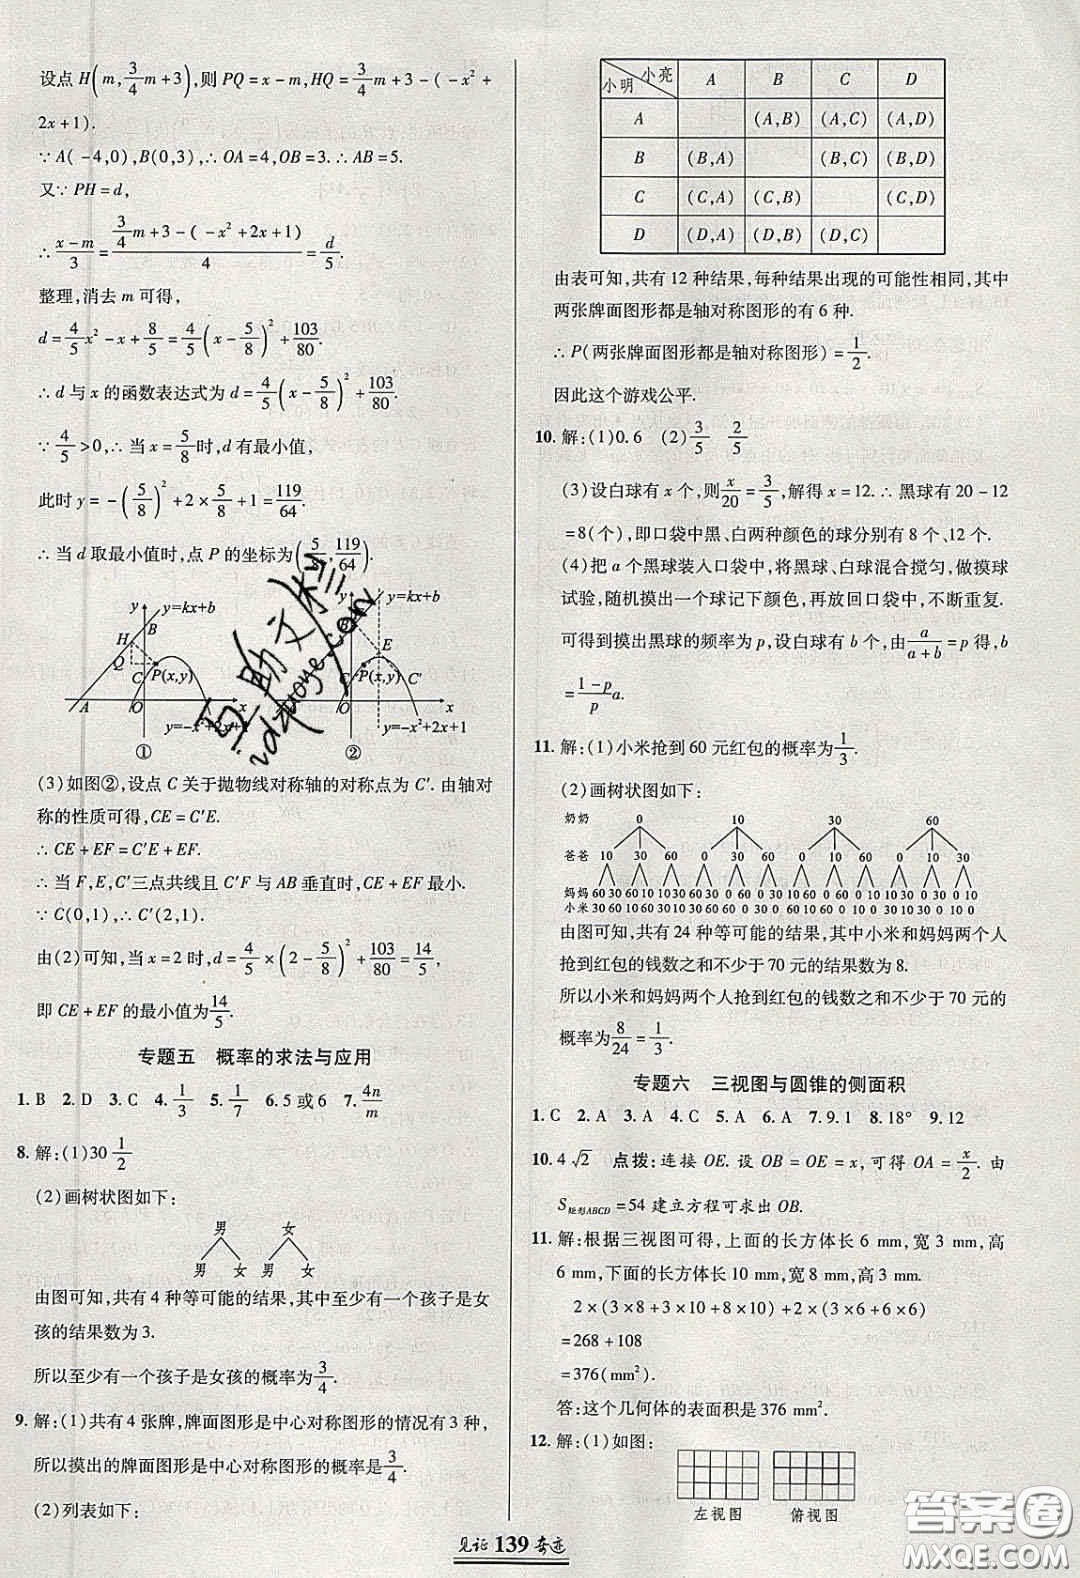 设点 H(m, 3/4 m+3),则 PQ=x-m,HQ=3/4 m+3-(-x²+
2x+1).
∵A(-4,0),B(0,3),∴OA=4,OB=3.∴AB=5.
又∵PH=d,
∴(x-m)/3=(3/4 m+3-(-x²+2x+1))/4=d/5.
整理,消去 m 可得,
d=4/5 x²-x+8/5=4/5(x-5/8)²+103/80.
∴d 与 x 的函数表达式为 d=4/5(x-5/8)²+103/80.
∵4/5>0,∴当 x=5/8 时,d 有最小值,
此时 y=-(5/8)²+2×5/8+1=119/64.
∴当 d 取最小值时,点 P 的坐标为(5/8,119/64).
y y=kx+b B H Q C P(x,y) A O x y=-x²+2x+1 ①
y y=kx+b B E C P(x,y) C′ O x y=-x²+2x+1 ②
(3)如图②,设点 C 关于抛物线对称轴的对称点为 C′.由轴对
称的性质可得,CE=C′E.
∴CE+EF=C′E+EF.
∴当 F,E,C′三点共线且 C′F 与 AB 垂直时,CE+EF 最小.
∵C(0,1),∴C′(2,1).
由(2)可知,当 x=2 时,d=4/5×(2-5/8)²+103/80=14/5,
即 CE+EF 的最小值为 14/5.
专题五 概率的求法与应用
1. B 2. D 3. C 4. 1/3 5. 1/7 6. 5 或 6 7. 4n/m
8. 解:(1)30 1/2
(2)画树状图如下:
男 女
男 女 男 女
由图可知,共有 4 种等可能的结果,其中至少有一个孩子是女
孩的结果数为 3.
所以至少有一个孩子是女孩的概率为 3/4.
9. 解:(1)共有 4 张牌,牌面图形是中心对称图形的情况有 3 种,
所以摸出的牌面图形是中心对称图形的概率是 3/4.
(2)列表如下:
小明 小亮 A B C D
A (A,B) (A,C) (A,D)
B (B,A) (B,C) (B,D)
C (C,A) (C,B) (C,D)
D (D,A) (D,B) (D,C)
由表可知,共有 12 种结果,每种结果出现的可能性相同,其中
两张牌面图形都是轴对称图形的有 6 种.
∴P(两张牌面图形都是轴对称图形)=1/2.
因此这个游戏公平.
10. 解:(1)0.6 (2)3/5 2/5
(3)设白球有 x 个,则 x/20=3/5,解得 x=12.∴黑球有 20-12
=8(个),即口袋中黑、白两种颜色的球分别有 8 个、12 个.
(4)把 a 个黑球装入口袋中,将黑球、白球混合搅匀,做摸球
试验,随机摸出一个球记下颜色,再放回口袋中,不断重复.
可得到摸出黑球的频率为 p,设白球有 b 个,由 a/(a+b)=p 得,b
=(1-p)/p a.
11. 解:(1)小米抢到 60 元红包的概率为 1/3.
(2)画树状图如下:
奶奶 0 10 30 60
爸爸 10 30 60 0 30 60 0 10 60 0 10 30
妈妈 60 30 60 10 10 30 60 30 60 0 0 30 10 60 60 0 10 0 30 10 30 0 10 0
小米 30 60 10 60 30 10 30 60 0 60 30 0 60 10 0 60 0 10 10 30 0 30 0 10
由图可知,共有 24 种等可能的结果,其中小米和妈妈两个人
抢到红包的钱数之和不少于 70 元的结果数为 8.
所以小米和妈妈两个人抢到红包的钱数之和不少于 70 元的
概率为 8/24=1/3.
专题六 三视图与圆锥的侧面积
1. C 2. A 3. A 4. C 5. A 6. A 7. 9.1 8. 18° 9. 12
10. 4√2 点拨:连接 OE. 设 OB=OE=x,可得 OA=x/2. 由
S矩形ABCD=54 建立方程可求出 OB.
11. 解:根据三视图可得,上面的长方体长 6 mm,宽 3 mm,高
6 mm,下面的长方体长 10 mm,宽 8 mm,高 3 mm.
2×(3×8+3×10+8×10)+2×(3×6+6×6)
=268+108
=376(mm²).
答:这个几何体的表面积是 376 mm².
12. 解:(1)如图:
左视图 俯视图
见证139奇迹
互助文档
idzuoye.com
答案圈
MXQE.COM